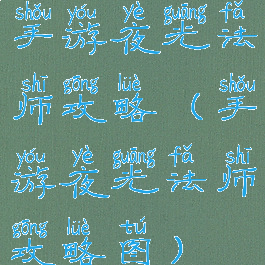 shǒu yóu yè guāng fǎ
手游夜光法
shī gōng lüè shǒu
师攻略（手
yóu yè guāng fǎ shī
游夜光法师
gōng lüè tú
攻略图）